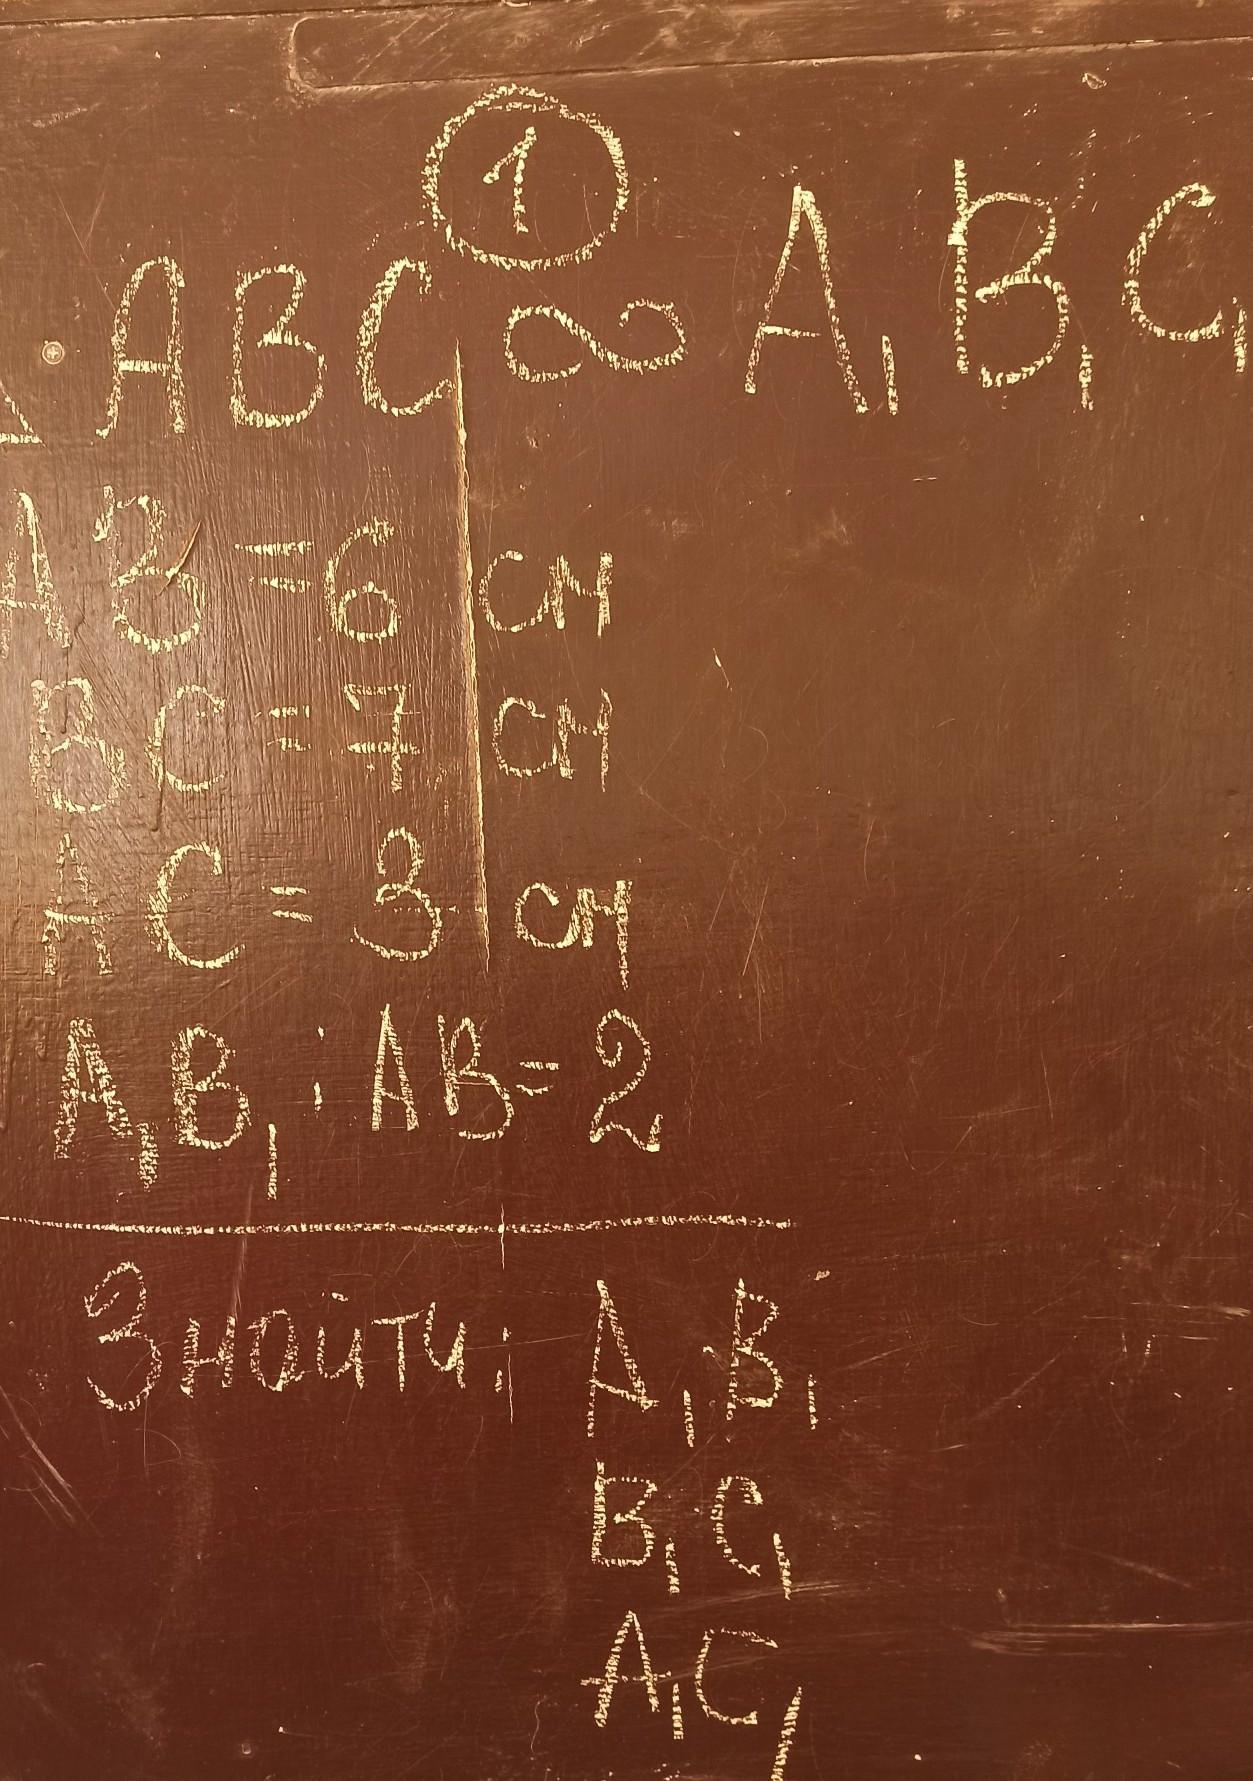 1
△ ABC ∾ A₁B₁C₁
AB = 6 см
BC = 7 см
AC = 3 см
A₁B₁ : AB = 2
Знайти: A₁B₁
B₁C₁
A₁C₁